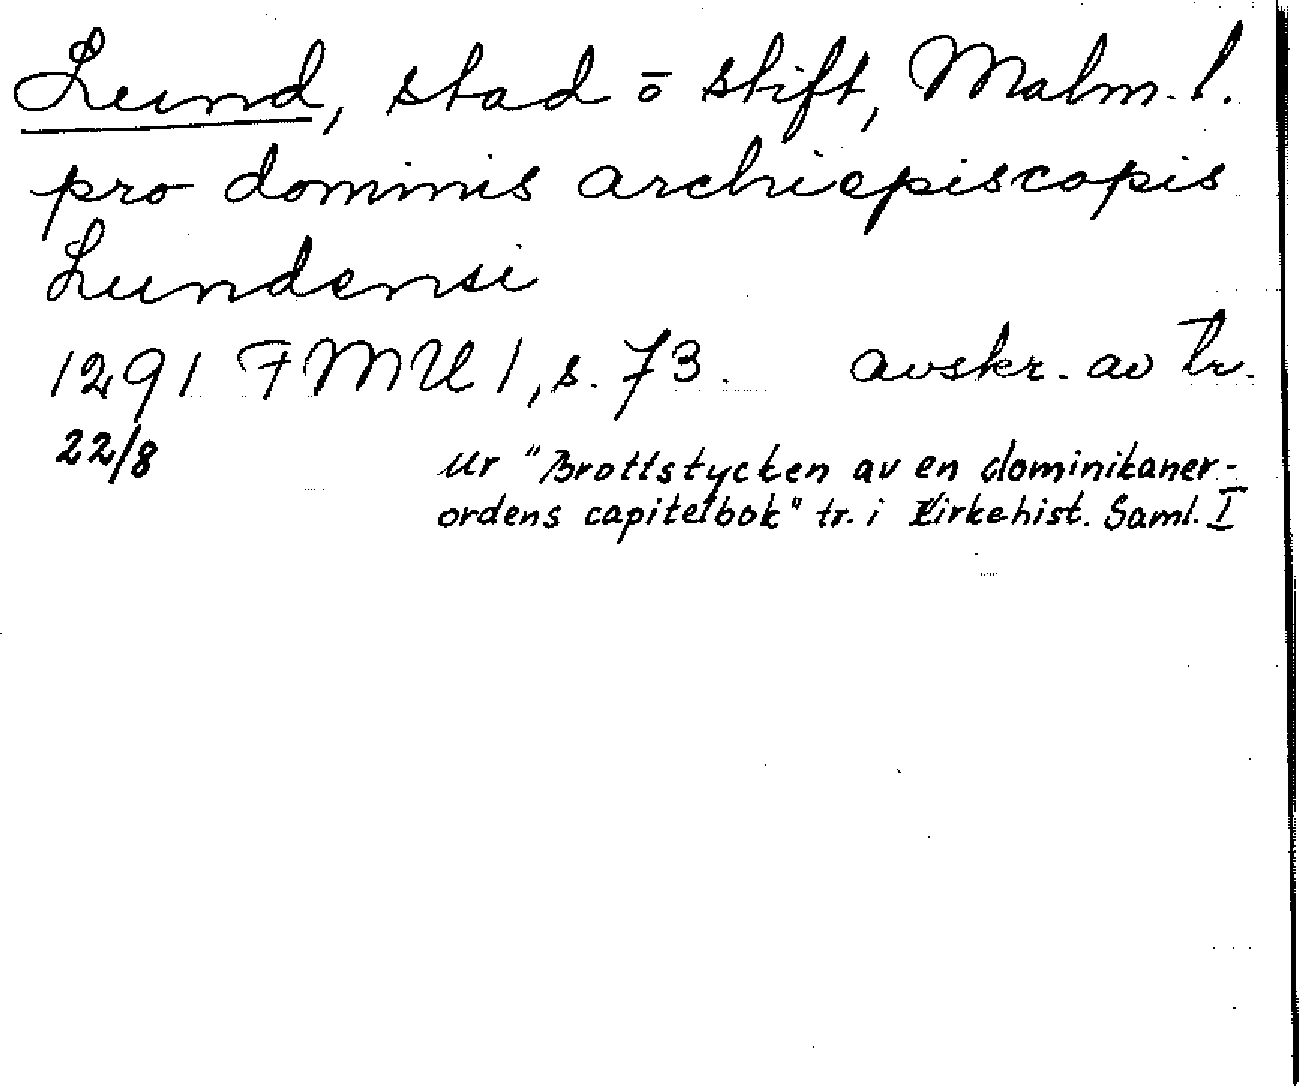 Lund, stad o stift, Malm. l.
pro dominis archiepiscopis
Lundensi
1291 FMU 1, s. 73. avskr. av tr.
22/8 ur "Brottstycken av en dominikaner-
ordens capitelbok" tr. i Kirkehist. Saml. I